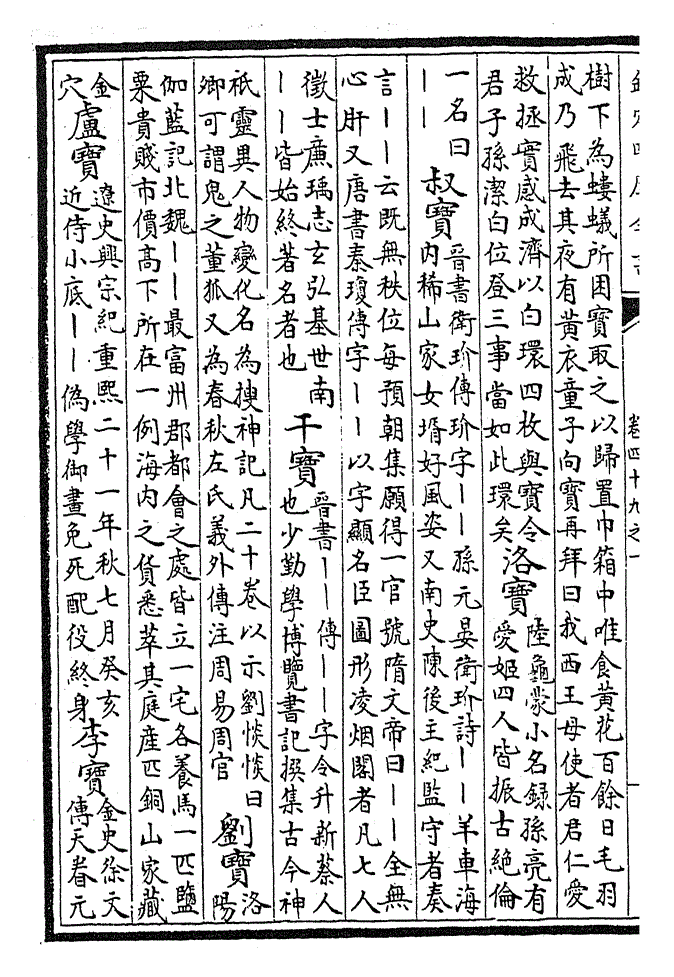 欽定四庫全書
卷四十九之一
樹下為螻蟻所困寶取之以歸置巾箱中唯食黃花百餘日毛羽
成乃飛去其夜有黃衣童子向寶再拜曰我西王母使者君仁愛
救拯實感成濟以白環四枚與寶令
君子孫潔白位登三事當如此環矣
洛寶
陸龜蒙小名録孫亮有
愛姬四人皆振古絶倫
一名曰
丨丨
叔寶
晉書衛玠傳玠字丨丨孫元晏衛玠詩丨丨羊車海
内稀山家女壻好風姿又南史陳後主紀監守者奏
言丨丨云既無秩位每預朝集願得一官號隋文帝曰丨丨全無
心肝又唐書秦瓊傳字丨丨以字顯名臣圖形凌烟閣者凡七人
徵士廉瑀志玄弘基世南
丨丨皆始終著名者也
干寶
晉書丨丨傳丨丨字令升新蔡人
也少勤學博覽書記撰集古今神
祇靈異人物變化名為搜神記凡二十卷以示劉惔惔曰
卿可謂鬼之董狐又為春秋左氏義外傳注周易周官
劉寶
洛
陽
伽藍記北魏丨丨最富州郡都會之處皆立一宅各養馬一匹鹽
粟貴賤市價高下所在一例海内之貨悉萃其庭産匹銅山家藏
金
穴
盧寶
遼史興宗紀重熙二十一年秋七月癸亥
近侍小底丨丨偽學御畫免死配役終身
李寶
金史徐文
傳天眷元